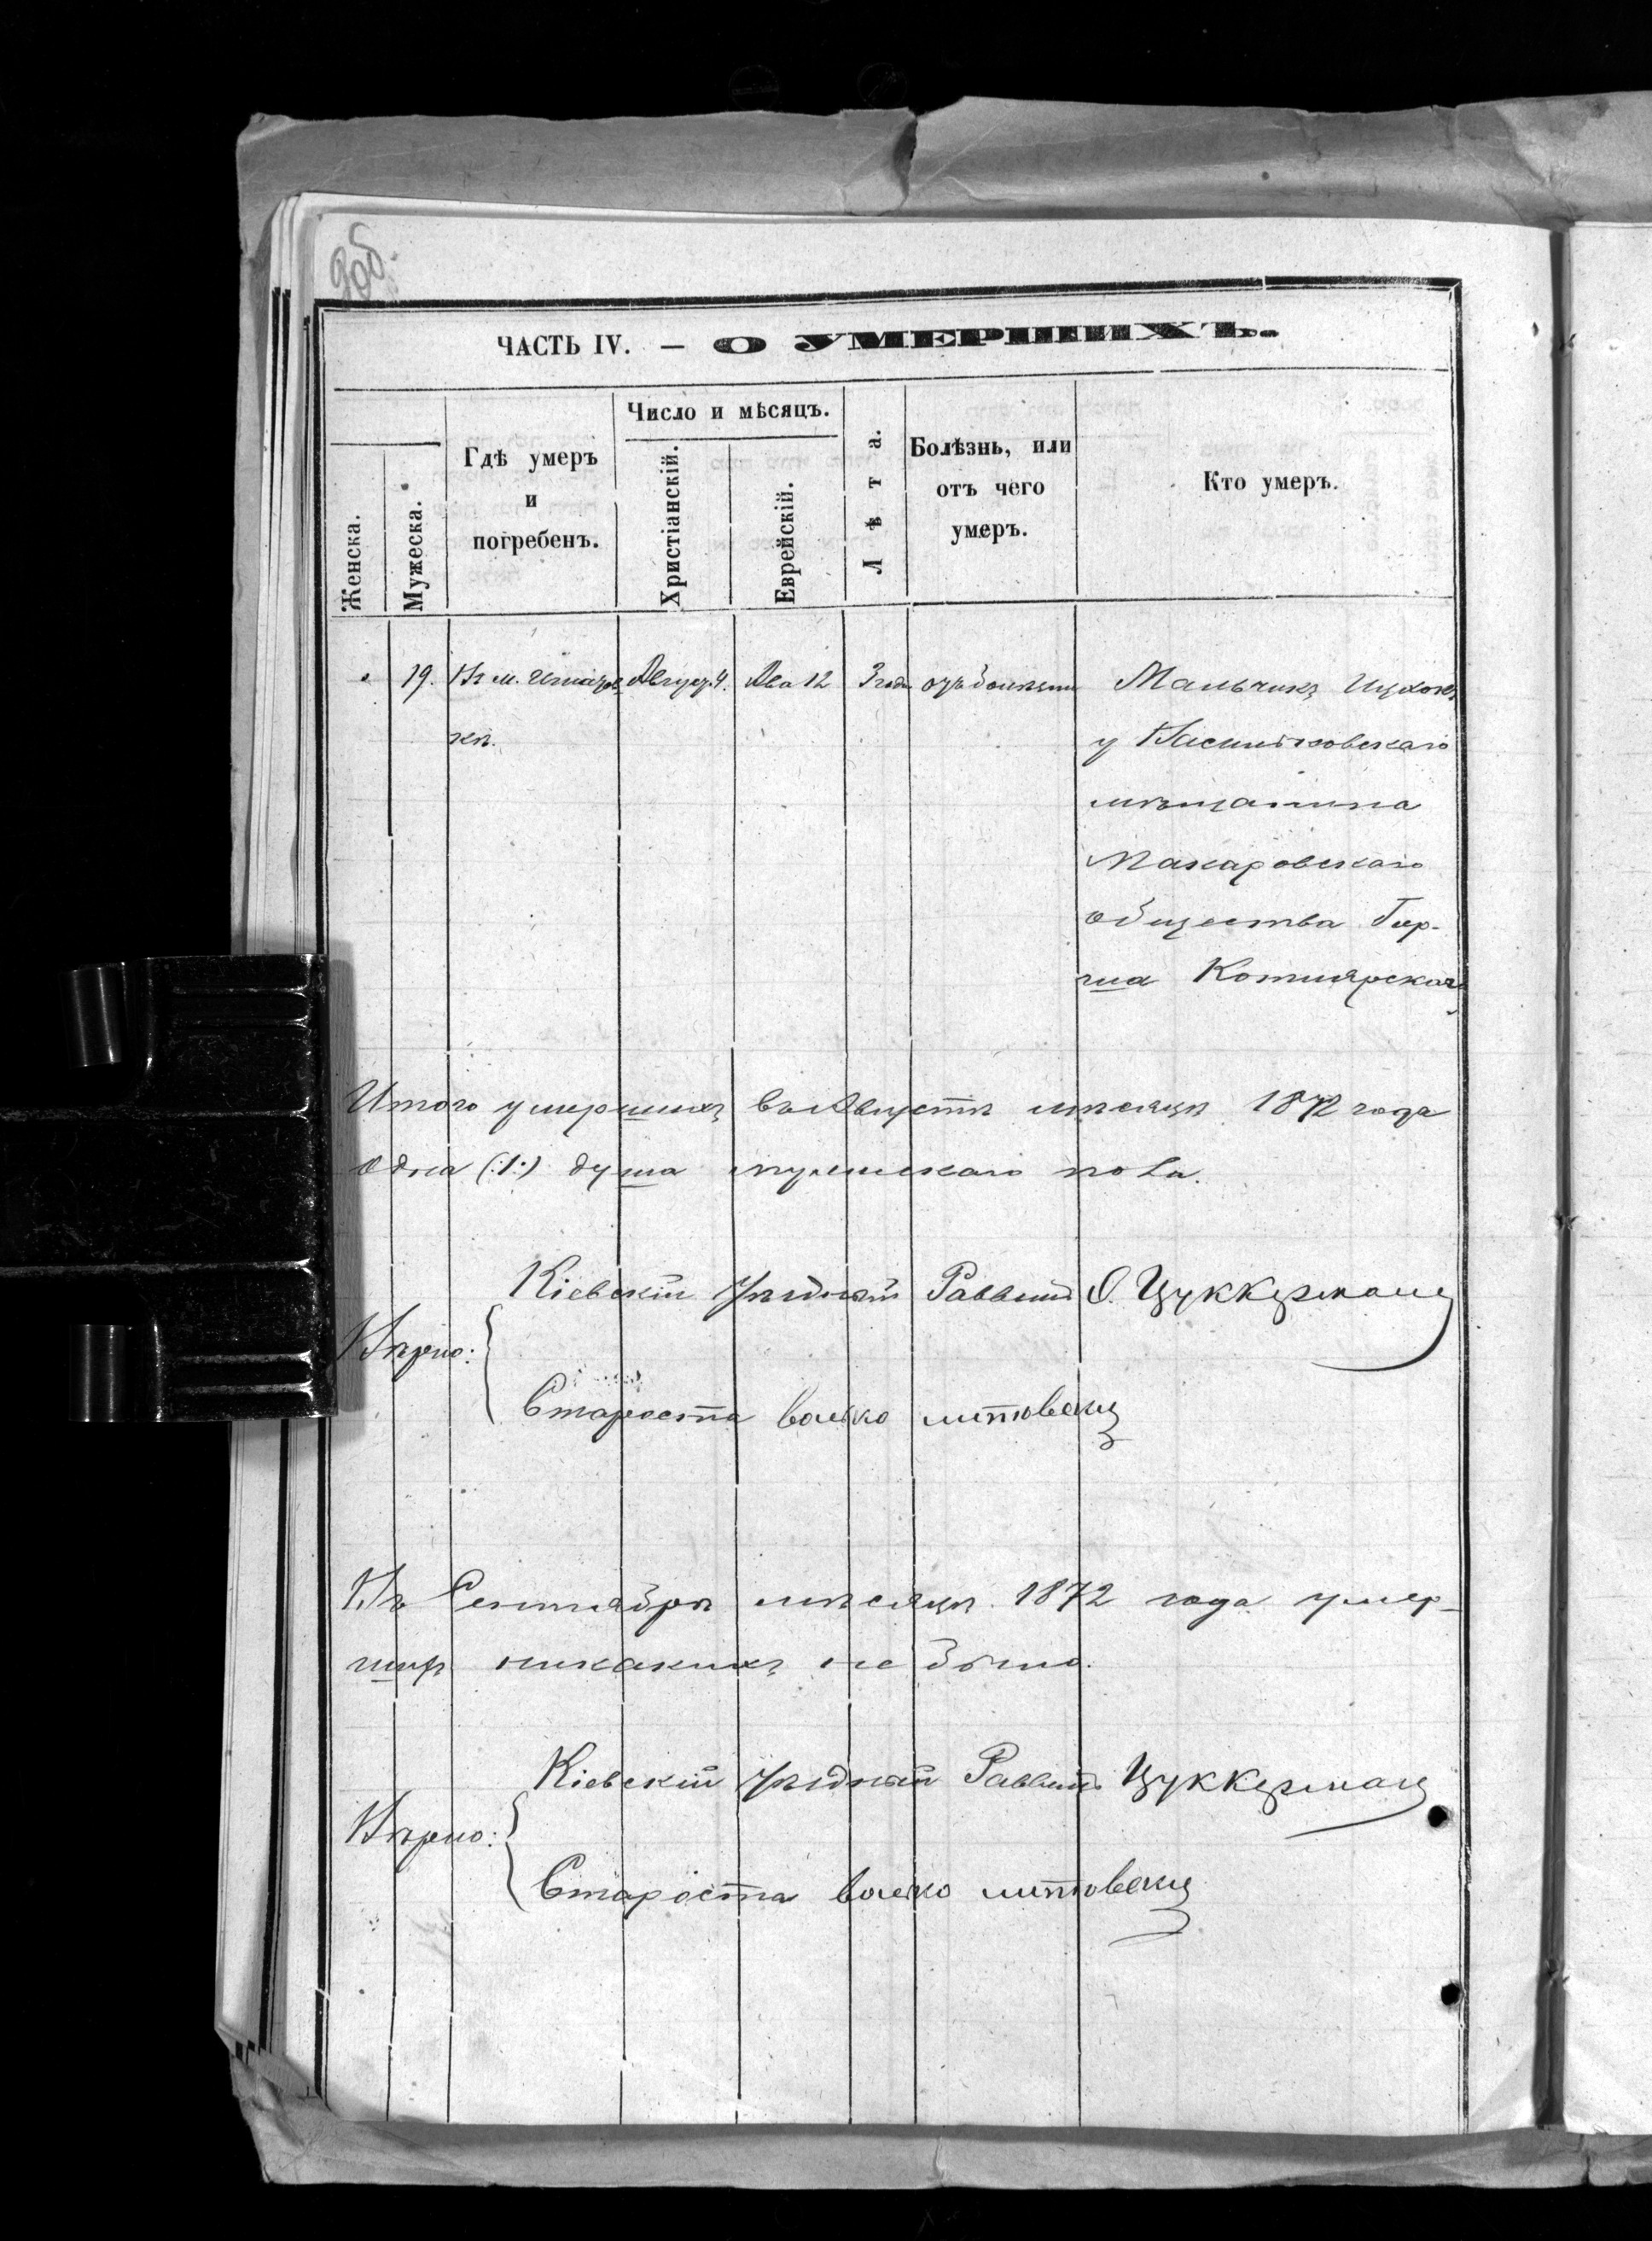 905
ЧАСТЬ IV. — О УМЕРШИХЪ.
Женска.
Мужеска.
Гдѣ умеръ
и
погребенъ.
Число и мѣсяцъ.
Христіанскій.
Еврейскій.
Лѣта.
Болѣзнь, или
отъ чего
умеръ.
Кто умеръ.
19. Въ м. Игнатов Август. 4. Ава 12 3 года отъ болезни Мальчикъ Ицхокъ
кѣ.
у Васильковскаго
мѣщанина
Макаровскаго
общества Гер-
ша Котлярскаго
Итого умершихъ въ Августѣ мѣсяцѣ 1872 года
одна (:1:) душа мужескаго пола.
Кіевскій уѣздный Раввинъ О. Цуккерманъ
Вѣрно:
Староста волько литовецъ
Въ Сентябрѣ мѣсяцѣ 1872 года умер-
шихъ никакихъ не было.
Кіевскій уѣздный Раввинъ Цуккерманъ
Вѣрно:
Староста волько литовецъ